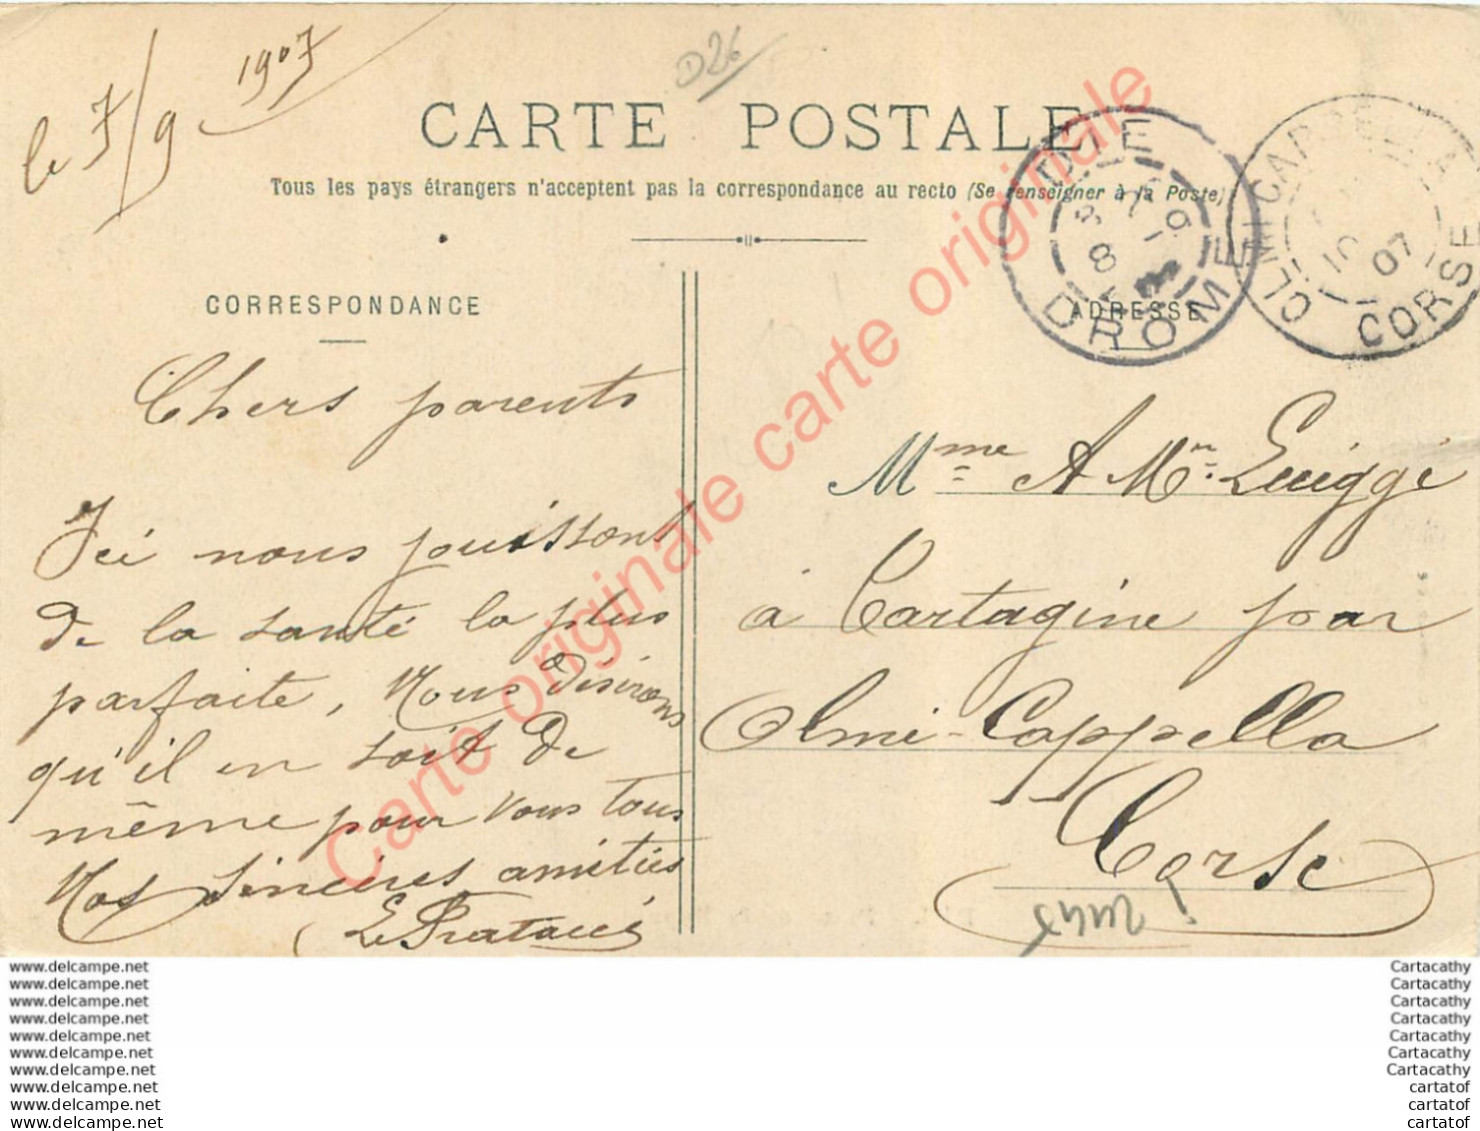 le 7/9 1907
D26
CARTE POSTALE
Tous les pays étrangers n'acceptent pas la correspondance au recto (Se renseigner à la Poste)
CORRESPONDANCE
ADRESSE
DIE
DROME
OLMI CAPPELLA
10
07
CORSE
Chers parents
Ici nous jouissons
de la santé la plus
parfaite, Nous désirons
qu'il en soit de
même pour vous tous
Nos sincères amitiés
Mme A Mn. Luiggi
à Cartagine par
Olmi-Cappella
Corse
Carte originale carte originale carte originale
www.delcampe.net
www.delcampe.net
www.delcampe.net
www.delcampe.net
www.delcampe.net
www.delcampe.net
www.delcampe.net
www.delcampe.net
www.delcampe.net
www.delcampe.net
Cartacathy
Cartacathy
Cartacathy
Cartacathy
Cartacathy
Cartacathy
Cartacathy
cartatof
cartatof
cartatof